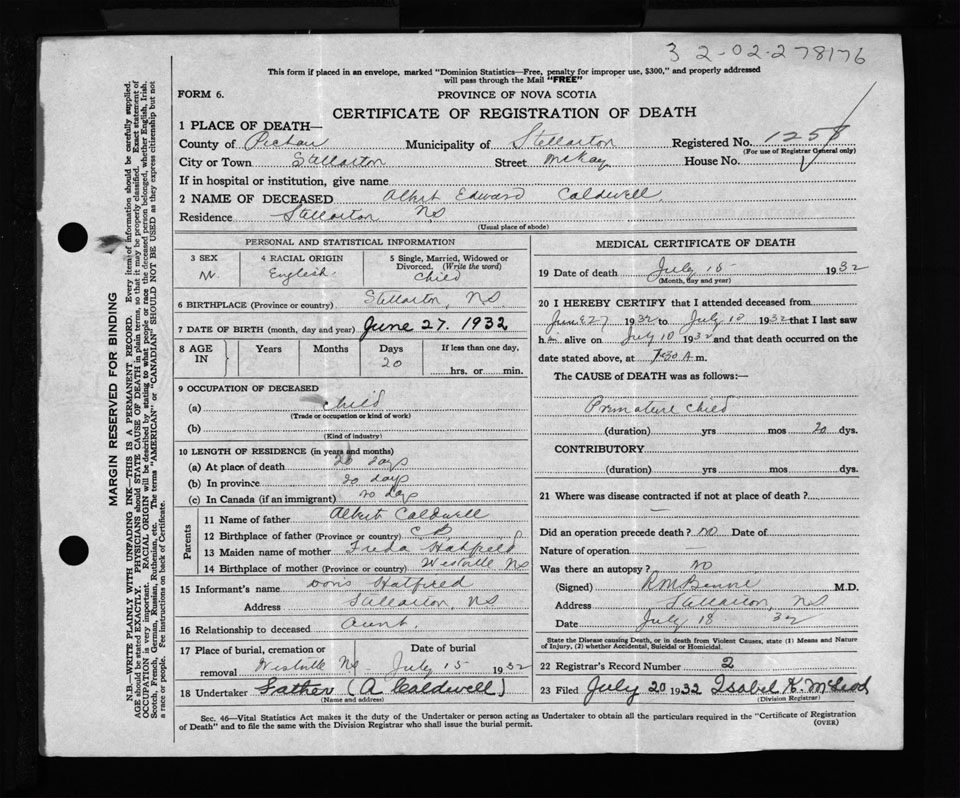 32-02-278176
This form if placed in an envelope, marked "Dominion Statistics—Free, penalty for improper use, $300," and properly addressed
will pass through the Mail "FREE"
FORM 6.
PROVINCE OF NOVA SCOTIA
CERTIFICATE OF REGISTRATION OF DEATH
1 PLACE OF DEATH—
County of Pictou Municipality of Stellarton Registered No. 1258
(For use of Registrar General only)
City or Town Stellarton Street McKay House No.
If in hospital or institution, give name
2 NAME OF DECEASED Albert Edward Caldwell
Residence Stellarton NS
(Usual place of abode)
PERSONAL AND STATISTICAL INFORMATION
3 SEX 4 RACIAL ORIGIN 5 Single, Married, Widowed or
Divorced. (Write the word)
M. English Child
6 BIRTHPLACE (Province or country) Stellarton, NS.
7 DATE OF BIRTH (month, day and year) June 27. 1932
8 AGE IN Years Months Days If less than one day,
20 hrs. or min.
9 OCCUPATION OF DECEASED
(a) child
(Trade or occupation or kind of work)
(b)
(Kind of industry)
10 LENGTH OF RESIDENCE (in years and months)
(a) At place of death 20 days
(b) In province 20 days
(c) In Canada (if an immigrant) 20 days
Parents
11 Name of father Albert Caldwell
12 Birthplace of father (Province or country) C B
13 Maiden name of mother Freda Hatfield
14 Birthplace of mother (Province or country) Westville NS
15 Informant's name Doris Hatfield
Address Stellarton, NS
16 Relationship to deceased Aunt.
17 Place of burial, cremation or Date of burial
removal Westville NS. July 15 1932
18 Undertaker Father (A Caldwell)
(Name and address)
MEDICAL CERTIFICATE OF DEATH
19 Date of death July 15 1932
(Month, day and year)
20 I HEREBY CERTIFY that I attended deceased from
June 27 1932 to July 10 1932 that I last saw
him alive on July 10 1932 and that death occurred on the
date stated above, at 7:30 A m.
The CAUSE of DEATH was as follows:—
Premature Child
(duration) yrs mos 20 dys.
CONTRIBUTORY
(duration) yrs mos dys.
21 Where was disease contracted if not at place of death?
—
Did an operation precede death? NO Date of
Nature of operation —
Was there an autopsy? NO
(Signed) R M Benvie M.D.
Address Stellarton, NS
Date July 18 32
State the Disease causing Death, or in death from Violent Causes, state (1) Means and Nature
of Injury, (2) whether Accidental, Suicidal or Homicidal.
22 Registrar's Record Number 2
23 Filed July 20 1932 Isabel K. McLeod
(Division Registrar)
Sec. 46—Vital Statistics Act makes it the duty of the Undertaker or person acting as Undertaker to obtain all the particulars required in the "Certificate of Registration
of Death" and to file the same with the Division Registrar who shall issue the burial permit. (OVER)
MARGIN RESERVED FOR BINDING
N.B.—WRITE PLAINLY WITH UNFADING INK—THIS IS A PERMANENT RECORD. Every item of information should be carefully supplied.
AGE should be stated EXACTLY. PHYSICIANS should STATE CAUSE OF DEATH in plain terms, so that it may be properly classified. Exact statement of
OCCUPATION is very important. RACIAL ORIGIN will be described by stating to what people or race the deceased person belonged, whether English, Irish,
Scotch, French, German, Russian, Ruthenian, etc. The terms "AMERICAN" or "CANADIAN" SHOULD NOT BE USED as they express citizenship but not
a race or people. Fee instructions on back of Certificate.